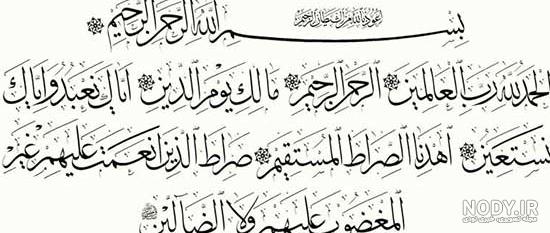 اعوذ بالله من الشیطان الرجیم
بسم الله الرحمن الرحیم
الحمد لله رب العالمین الرحمن الرحیم مالک یوم الدین ایاک نعبد و ایاک
نستعین اهدنا الصراط المستقیم صراط الذین انعمت علیهم غیر
المغضوب علیهم ولا الضالین
NODY.IR